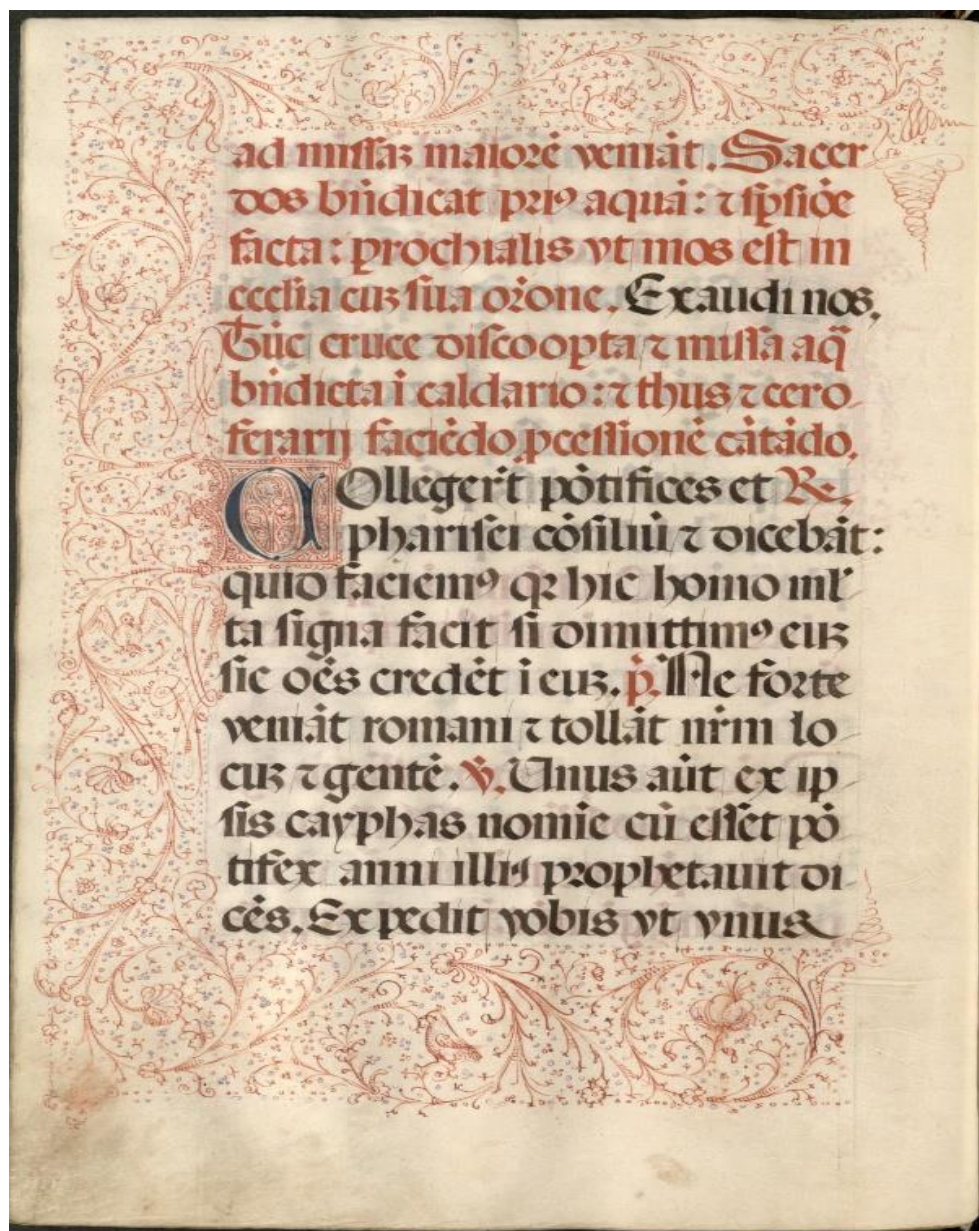 ad missaꝫ maiorē veniāt. Sacer
dos bn̄dicat priꝰ aquā: ⁊ sp̱siōe
facta: prochialis vt mos est in
ecclīa cuꝫ sua orōne. Exaudi nos.
Tūc cruce discoopta ⁊ missa aq̄
bn̄dicta ī caldario: ⁊ thus ⁊ cero
ferarij faciēdo ꝓcessionē cātādo.
COllegerūt pōtifices et R.
pharisei cōsiliū ⁊ dicebāt:
quid faciemꝰ qꝛ hic homo ml̄
ta signa facit si dimittimꝰ euꝫ
sic oēs credēt ī euꝫ. p̄. Ne forte
veniāt romani ⁊ tollāt nr̄m lo
cuꝫ ⁊ gentē. ℣. Unus aūt ex ip
sis cayphas nomīe cū essēt pō
tifex anni illiꝰ prophetauit di
cēs. Expedit vobis vt vnus